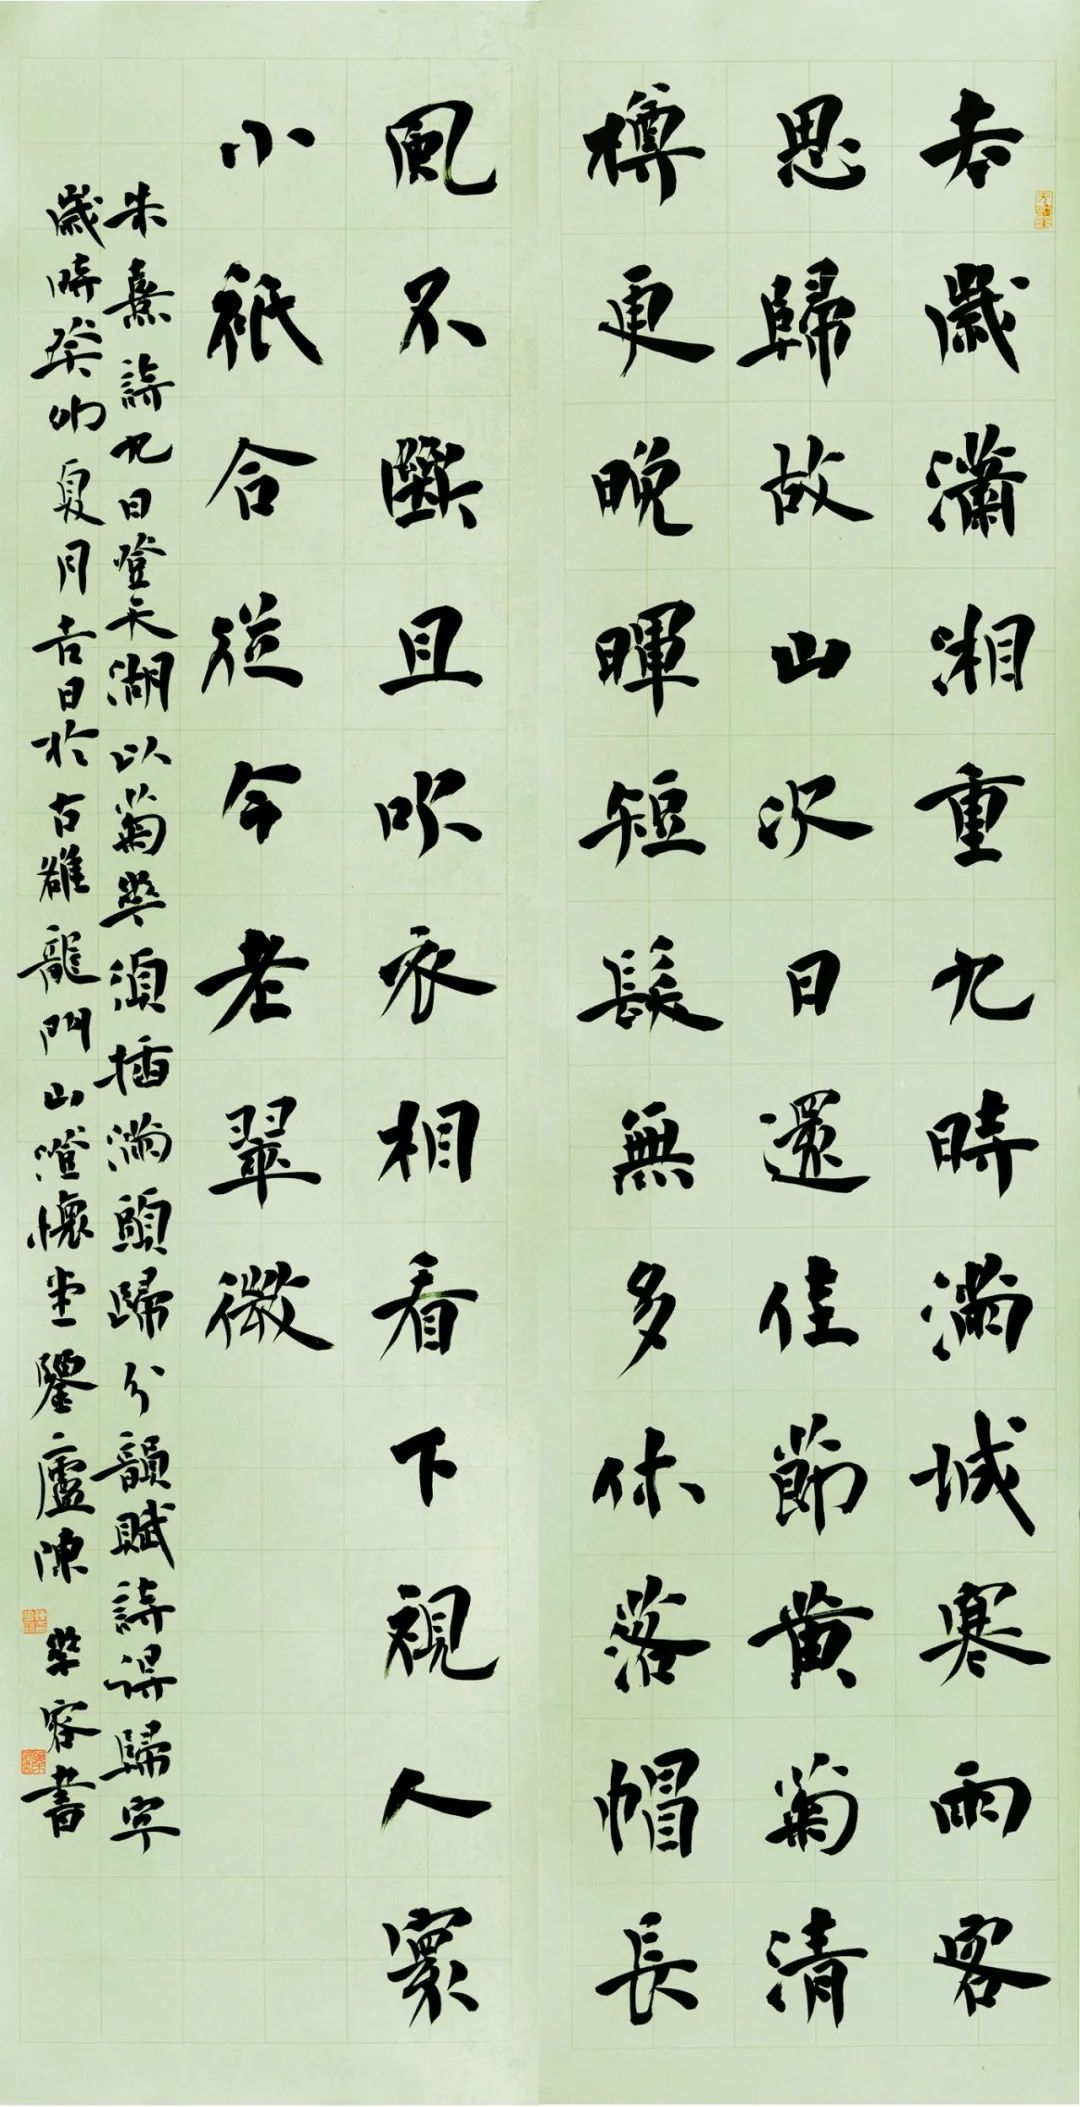 去歲瀟湘重九時滿城寒雨客
思歸故山此日還佳節黃菊清
樽更晚暉短髮無多休落帽長
風不斷且吹衣相看下視人寰
小祇合從今老翠微
朱熹詩九日登天湖以菊華須插滿頭歸分韻賦詩得歸字
歲時癸卯夏月吉日於古雒龍門山澄懷堂廬陳華容書